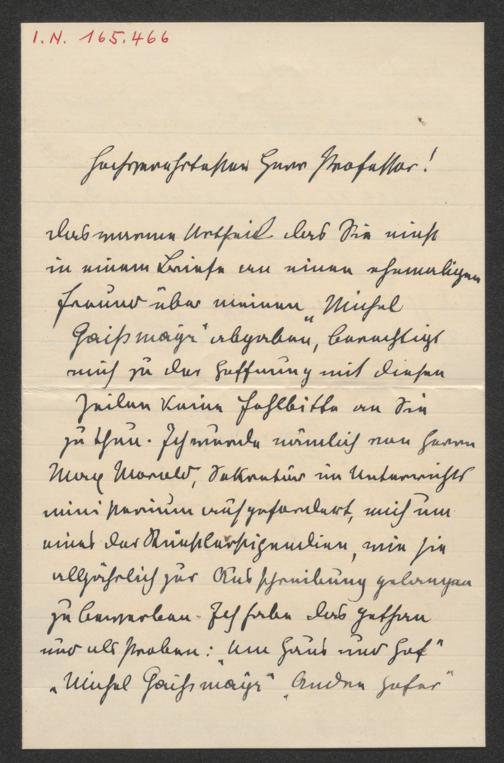 I.N. 165.466
Hochverehrtester Herr Professor!
das warme Urtheil das Sie einst
in einem Briefe an einen ehemaligen
Freund über meinen „Michel
Gaißmayr" abgaben, berechtigt
mich zu der Hoffnung mit diesen
Zeilen keine Fehlbitte an Sie
zu thun. Ich wurde nämlich von Herrn
Max Morold, Sekretär im Unterrichts
ministerium aufgefordert, mich um
eines der Künstlerstipendien, wie sie
alljährlich zur Ausschreibung gelangen
zu bewerben. Ich habe das gethan
und als Proben: „Um Haus und Hof"
„Michel Gaißmayr" „Andre Hofer"